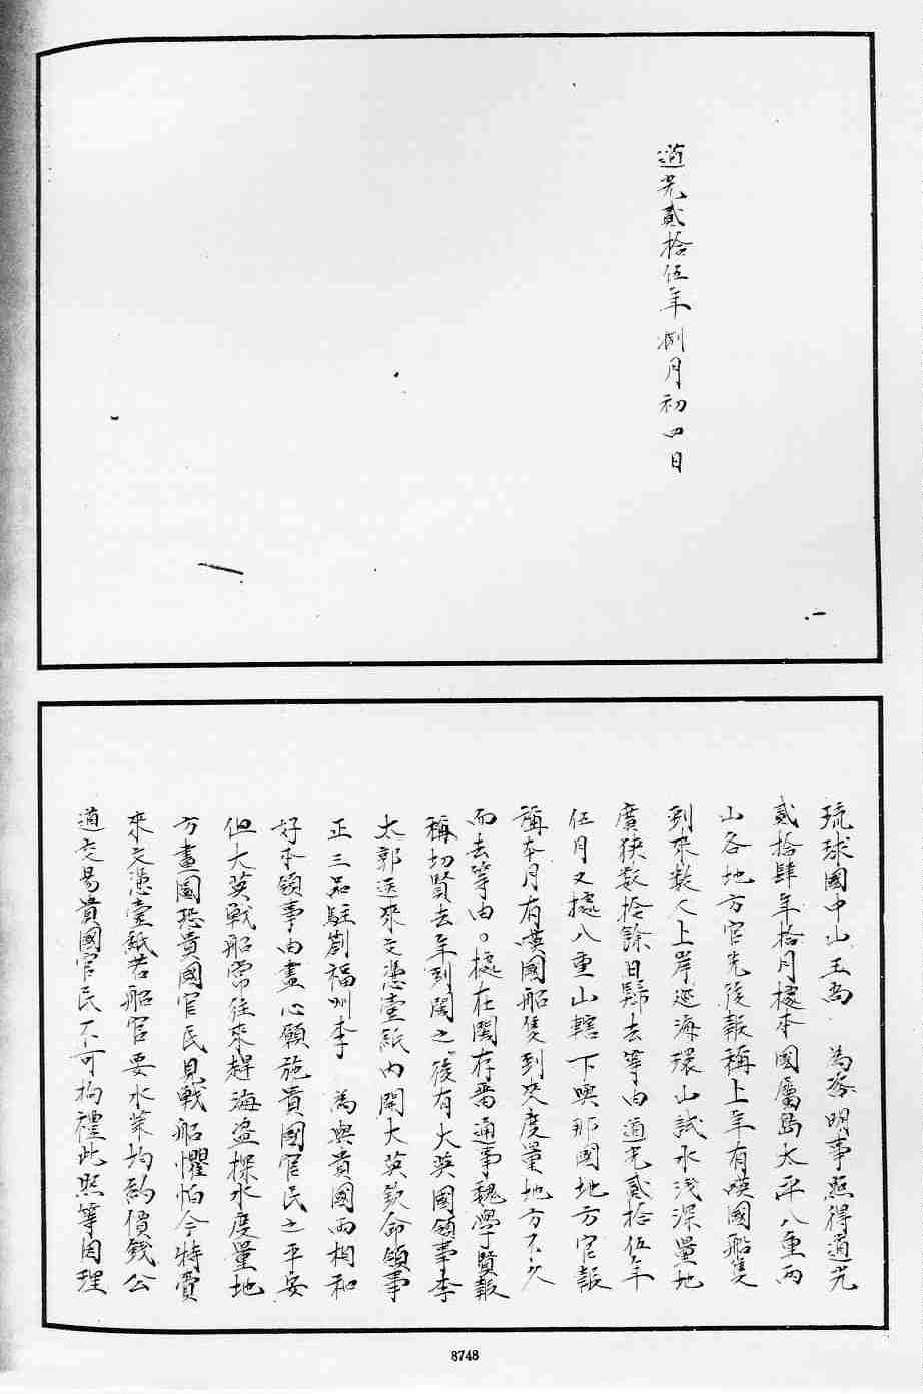 道光貳拾伍年捌月初四日
琉球國中山王尚　為咨明事照得道光
貳拾肆年拾月據本國屬島太平八重兩
山各地方官先後報稱上年有嘆國船隻
到來數人上岸巡海環山試水浅深量地
廣狹数拾餘日歸去等由道光貳拾伍年
伍月又據八重山轄下與那國地方官報
稱本月有嘆國船隻到來度量地方不久
而去等由。據在閩存留通事魏學賢報
稱切賢去年到閩之後有大英國領事李
太郭送來文憑壹紙內開大英欽命領事
正三品駐劄福州李　為與貴國兩相和
好本領事由盡心願施貴國官民之平安
但大英戰船常往來趕海盗探水度量地
方畫圖恐貴國官民見戰船懼怕今特賣
來文憑壹紙若船官要水菜均約價錢公
道交易貴國官民不可拘禮此照等因理
8748